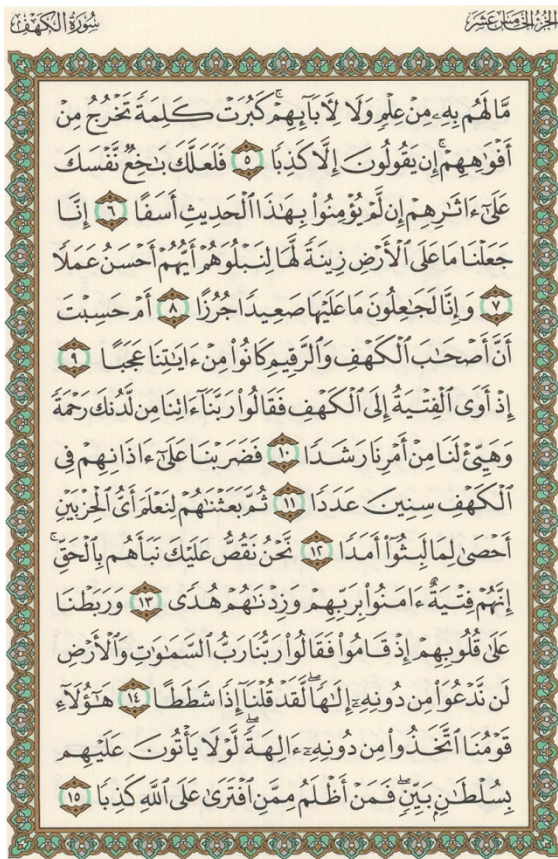 الجزء الخامس عشر
سورة الكهف
مَّا لَهُم بِهِۦ مِنْ عِلْمٍ وَلَا لِأٓبَآئِهِمْ ۚ كَبُرَتْ كَلِمَةً تَخْرُجُ مِنْ
أَفْوَٰهِهِمْ ۚ إِن يَقُولُونَ إِلَّا كَذِبًا ٥ فَلَعَلَّكَ بَٰخِعٌ نَّفْسَكَ
عَلَىٰٓ ءَاثَٰرِهِمْ إِن لَّمْ يُؤْمِنُوا۟ بِهَٰذَا ٱلْحَدِيثِ أَسَفًا ٦ إِنَّا
جَعَلْنَا مَا عَلَى ٱلْأَرْضِ زِينَةً لَّهَا لِنَبْلُوَهُمْ أَيُّهُمْ أَحْسَنُ عَمَلًا
٧ وَإِنَّا لَجَٰعِلُونَ مَا عَلَيْهَا صَعِيدًا جُرُزًا ٨ أَمْ حَسِبْتَ
أَنَّ أَصْحَٰبَ ٱلْكَهْفِ وَٱلرَّقِيمِ كَانُوا۟ مِنْ ءَايَٰتِنَا عَجَبًا ٩
إِذْ أَوَى ٱلْفِتْيَةُ إِلَى ٱلْكَهْفِ فَقَالُوا۟ رَبَّنَآ ءَاتِنَا مِن لَّدُنكَ رَحْمَةً
وَهَيِّئْ لَنَا مِنْ أَمْرِنَا رَشَدًا ١٠ فَضَرَبْنَا عَلَىٰٓ ءَاذَانِهِمْ فِى
ٱلْكَهْفِ سِنِينَ عَدَدًا ١١ ثُمَّ بَعَثْنَٰهُمْ لِنَعْلَمَ أَىُّ ٱلْحِزْبَيْنِ
أَحْصَىٰ لِمَا لَبِثُوٓا۟ أَمَدًا ١٢ نَّحْنُ نَقُصُّ عَلَيْكَ نَبَأَهُم بِٱلْحَقِّ ۚ
إِنَّهُمْ فِتْيَةٌ ءَامَنُوا۟ بِرَبِّهِمْ وَزِدْنَٰهُمْ هُدًى ١٣ وَرَبَطْنَا
عَلَىٰ قُلُوبِهِمْ إِذْ قَامُوا۟ فَقَالُوا۟ رَبُّنَا رَبُّ ٱلسَّمَٰوَٰتِ وَٱلْأَرْضِ
لَن نَّدْعُوَا۟ مِن دُونِهِۦٓ إِلَٰهًا ۖ لَّقَدْ قُلْنَآ إِذًا شَطَطًا ١٤ هَٰٓؤُلَآءِ
قَوْمُنَا ٱتَّخَذُوا۟ مِن دُونِهِۦٓ ءَالِهَةً ۖ لَّوْلَا يَأْتُونَ عَلَيْهِم
بِسُلْطَٰنٍۭ بَيِّنٍ ۖ فَمَنْ أَظْلَمُ مِمَّنِ ٱفْتَرَىٰ عَلَى ٱللَّهِ كَذِبًا ١٥